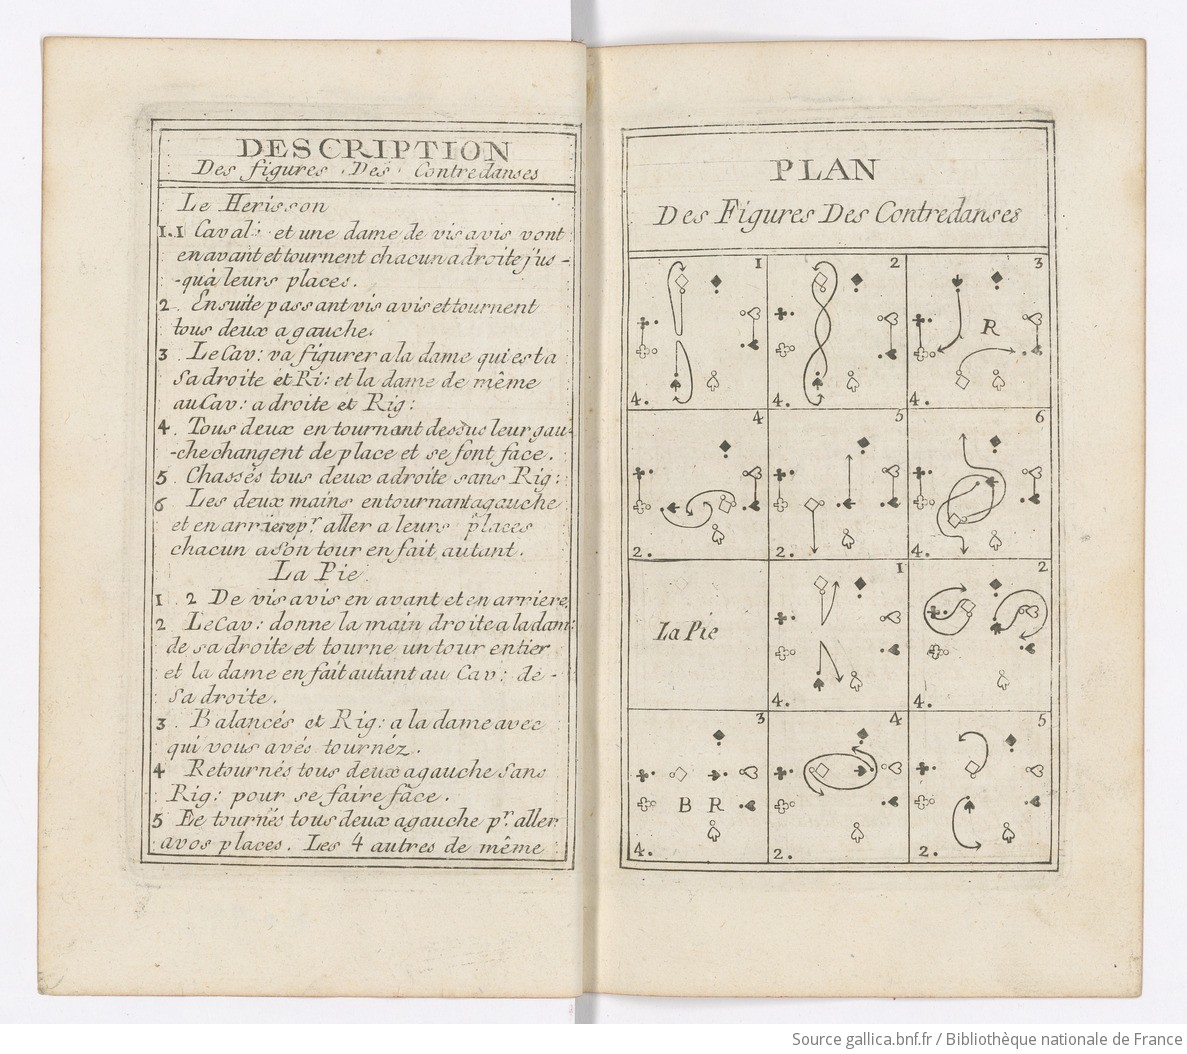 DESCRIPTION
Des figures Des Contredanses
Le Herisson
1. 1 Caval: et une dame de vis avis vont
en avant et tournent chacun a droite jus-
-quà leurs places.
2. Ensuite passant vis avis et tournent
tous deux a gauche.
3. Le Cav: va figurer a la dame qui est a
sa droite et Ri: et la dame de même
au Cav: a droite et Rig:
4. Tous deux en tournant dessus leur gau-
-che changent de place et se font face.
5. Chassés tous deux a droite sans Rig:
6 Les deux mains en tournant a gauche
et en arriere pr. aller a leurs places
chacun a son tour en fait autant.
La Pie.
1. 2 De vis avis en avant et en arriere.
2. Le Cav: donne la main droite a la dam:
de sa droite et tourne un tour entier
et la dame en fait autant au Cav: de-
sa droite.
3. Balancés et Rig: a la dame avec
qui vous avés tournéz.
4 Retournés tous deux a gauche sans
Rig: pour se faire face.
5 De tournés tous deux a gauche pr. aller
a vos places. Les 4 autres de même
PLAN
Des Figures Des Contredanses
1
4.
2
4.
3
R
4.
4
2.
5
2.
6
4.
La Pie
1
4.
2
4.
3
B R
4.
4
2.
5
2.
Source gallica.bnf.fr / Bibliothèque nationale de France